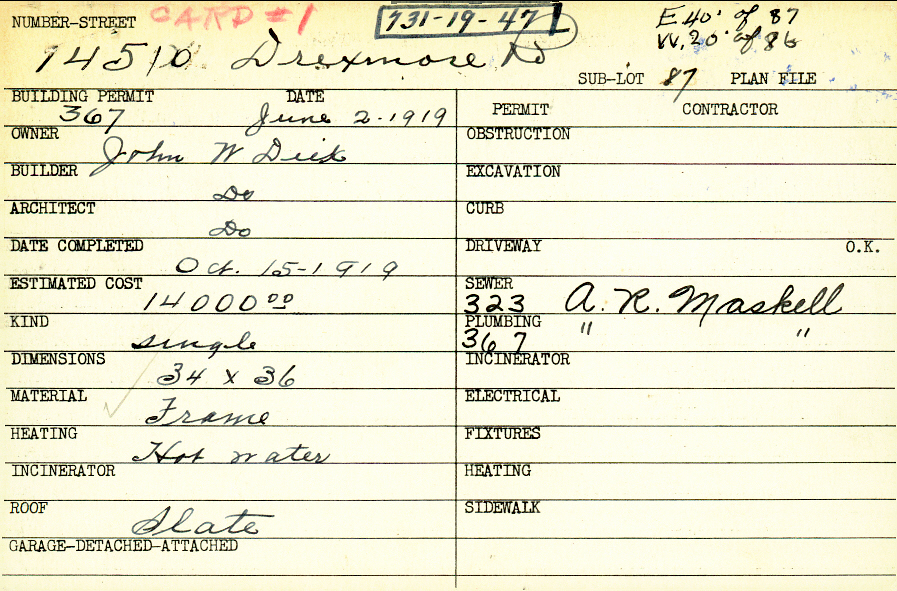 NUMBER-STREET CARD #1 731-19-47 E. 40' of 87
W. 20' of 86
14510 Drexmore Rd
SUB-LOT 87 PLAN FILE
BUILDING PERMIT DATE
367 June 2-1919
PERMIT CONTRACTOR
OWNER John W Dick
OBSTRUCTION
BUILDER Do
EXCAVATION
ARCHITECT Do
CURB
DATE COMPLETED Oct. 15-1919
DRIVEWAY O.K.
ESTIMATED COST 14000 00
SEWER
323 A. R. Maskell
KIND single
PLUMBING
367 " "
DIMENSIONS 34 x 36
INCINERATOR
MATERIAL Frame
ELECTRICAL
HEATING Hot water
FIXTURES
INCINERATOR
HEATING
ROOF Slate
SIDEWALK
GARAGE-DETACHED-ATTACHED